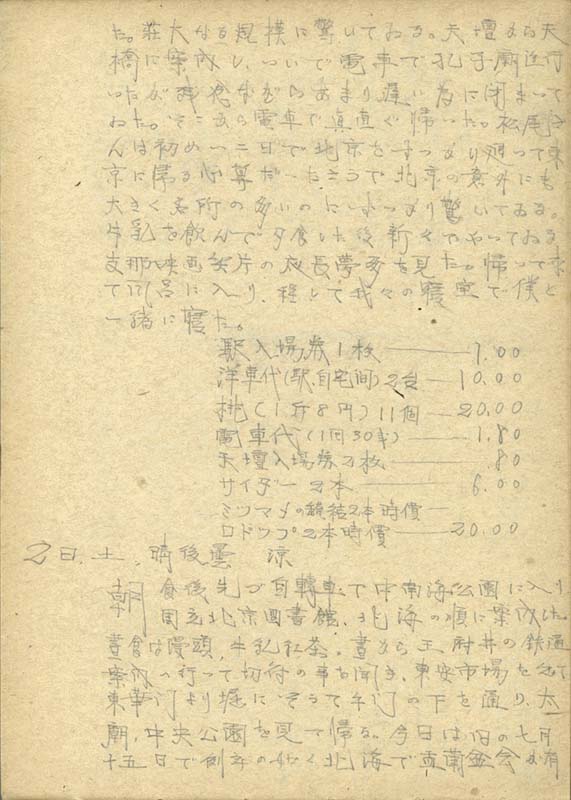 た。荘大なる規模に驚いてゐる。天壇から天
橋に案内し、ついで電車で孔子廟迄行
いたが残念ながらあまり遅い為に閉まって
ゐた。そこから電車で真直ぐ帰いた。松尾さ
んは初め一二日で北京をすっかり廻って東
京に帰る心算だったさうで北京の意外にも
大きく名所の多いのにすっかり驚いてゐる。
牛乳を飲んで夕食した後新々でやってゐる
支那映画笑片の夜長夢多を見た。帰って来
て風呂に入り、程して我々の寝室で僕と
一緒に寝た。
駅入場券1枚 ——— 1.00
洋車代(駅、自宅間)2台 — 10.00
桃(1斤8円)11個 — 20.00
電車代(1回30銭) —— 1.80
天壇入場券2枚 —— .80
サイダー 2本 —— 6.00
ミツマメの缶詰2本時價 —
ロドップ2本時價 — 20.00
2日、土、晴後曇 涼
朝食後先づ自轉車で中南海公園に入り
国立北京図書館、北海の順に案内した。
晝食は饅頭、牛乳紅茶。晝から王府井の鉄道
案内へ行って切符の事を聞き、東安市場を
東華门より堀にそうて午门の下を通り、太
廟、中央公園を見て帰る。今日は旧の七月
十五日で例年の如く北海で盂蘭盆会が有